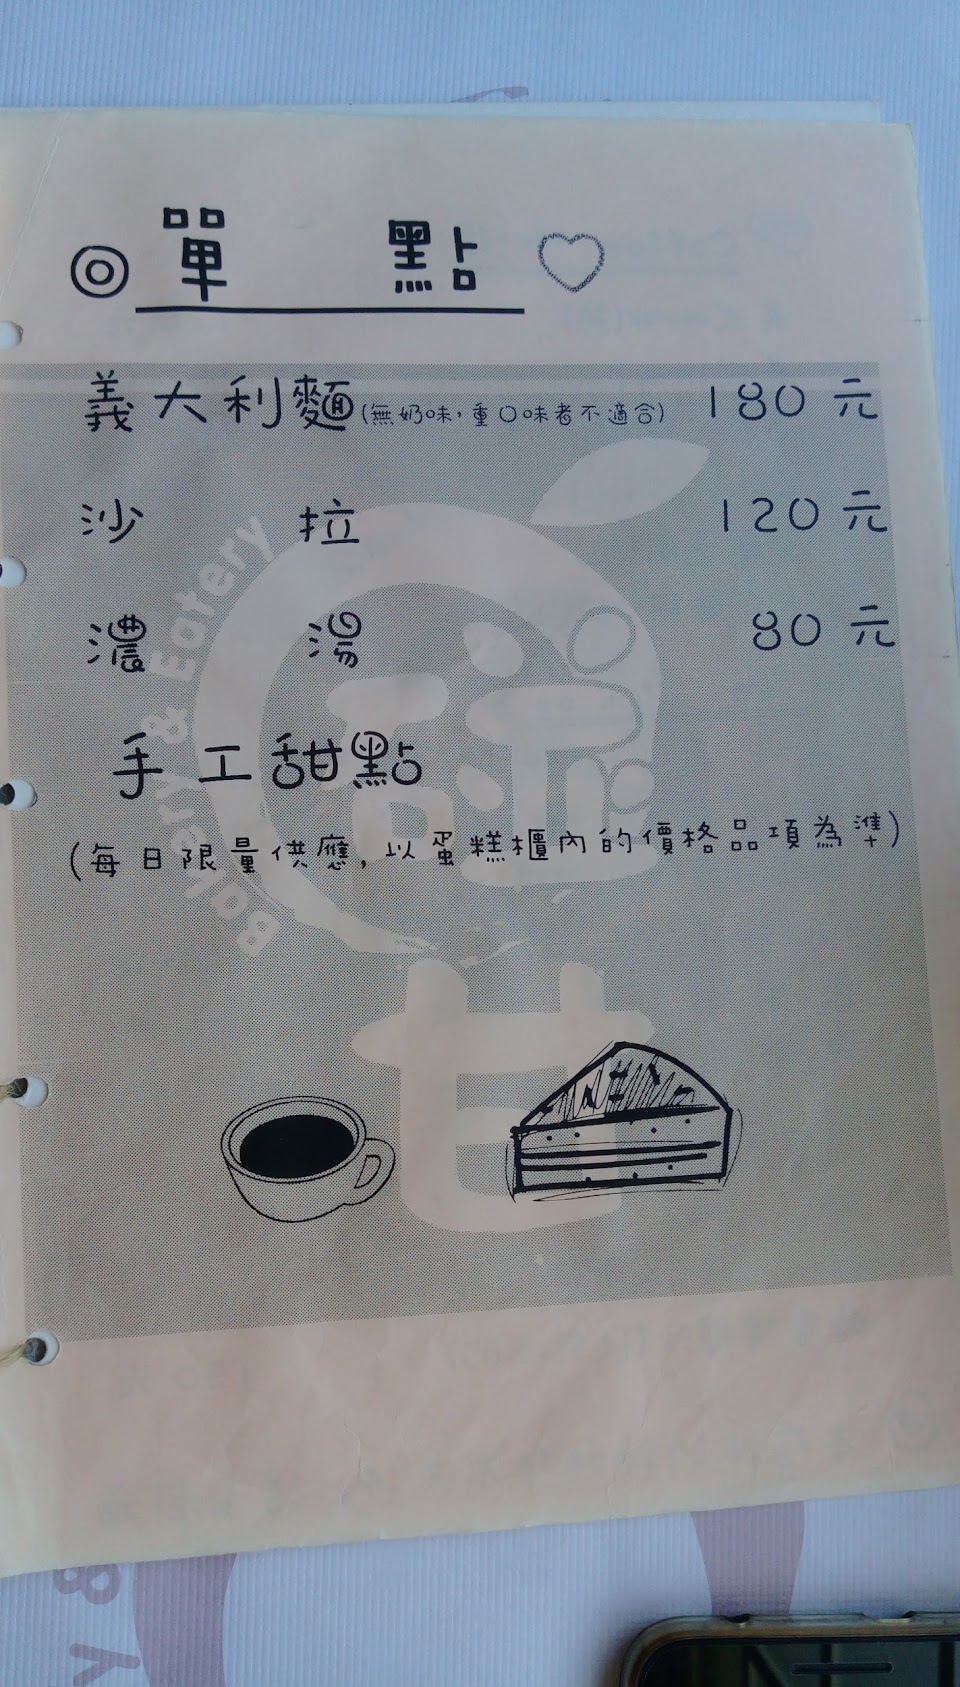 ◎單 點♡
義大利麵(無奶味,重口味者不適合) 180元
沙 拉 120元
濃 湯 80元
手工甜點
(每日限量供應,以蛋糕櫃內的價格品項為準)
Bakery & Eatery
甘
y &